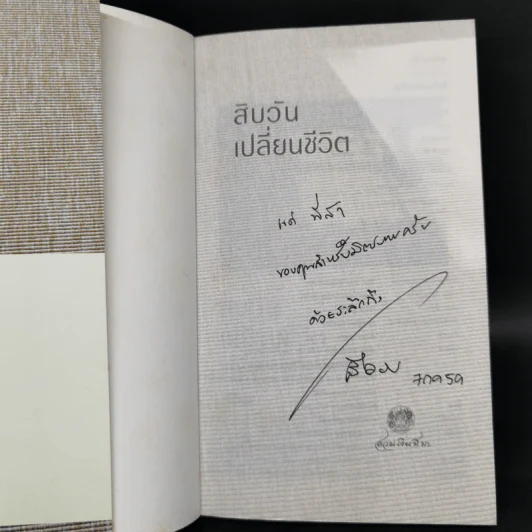 สิบวัน
เปลี่ยนชีวิต
แด่ พี่สา
ขอบคุณสำหรับมิตรภาพครับ
ด้วยระลึกถึง
7 กค 59
สวนเงินมีมา